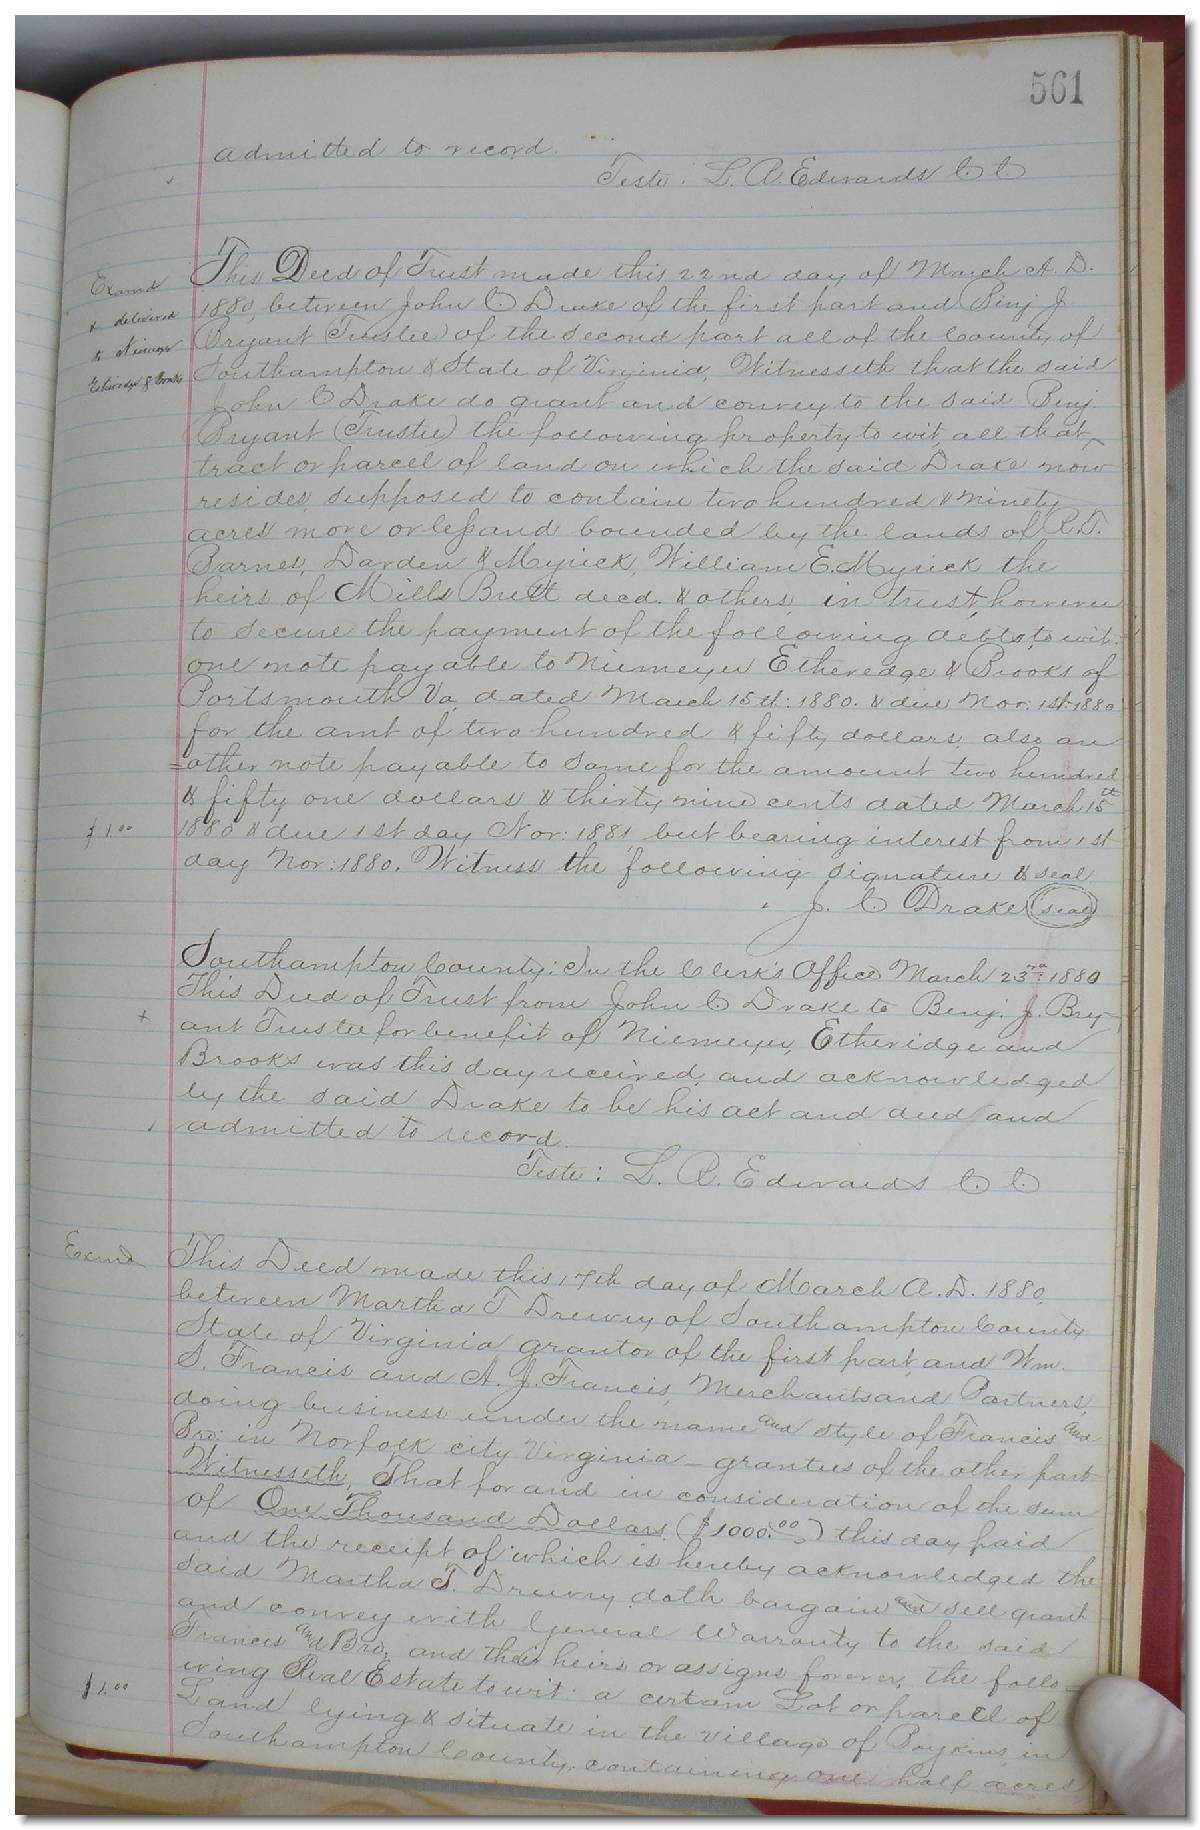 561
admitted to record.
Teste: L. R. Edwards C C
Examd
& delivered
& Niemyer
Etheredge & Brooks
This Deed of Trust made this 22nd day of March A. D.
1880, between John C Drake of the first part and Benj J.
Bryant (Trustee) of the second part all of the County of
Southampton & State of Virginia, Witnesseth that the said
John C Drake do grant and convey to the said Benj.
Bryant (Trustee) the following property to wit, all that
tract or parcel of land on which the said Drake now
resides, supposed to contain two hundred & ninety
acres more or less and bounded by the lands of R. T.
Barnes, Darden & Myrick, William E. Myrick the
heirs of Mills Britt decd. & others, in trust, however
to secure the payment of the following debts, to wit:
one note payable to Niemeyer Etheredge & Brooks of
Portsmouth Va, dated March 15th: 1880. & due Nov: 1st 1880
for the amt of two hundred & fifty dollars, also an
=other note payable to same for the amount two hundred
& fifty one dollars & thirty nine cents dated March 15th
$1.00
1880 & due 1st day Nov: 1881 but bearing interest from 1st
day Nov: 1880. Witness the following signature & seal
J. C Drake (seal)
Southampton County: In the Clerk's Office March 23rd: 1880
This Deed of Trust from John C Drake to Benj. J. Bry-
ant Trustee for benefit of Niemeyer, Etheridge and
Brooks was this day received, and acknowledged
by the said Drake to be his act and deed and
admitted to record.
Teste: L. R. Edwards C C
Examd
This Deed made this 17th day of March A. D. 1880.
between Martha T Drewry of Southampton County
State of Virginia grantor of the first part, and Wm.
S. Francis and A. J. Francis, Merchants and Partners,
doing business under the name and style of Francis and
Bro: in Norfolk city Virginia – grantees of the other part
Witnesseth, That for and in consideration of the sum
of One Thousand Dollars ($1000.00) this day paid
and the receipt of which is hereby acknowledged the
said Martha T. Drewry doth bargain and sell grant
and convey with General Warranty to the said
Francis and Bro, and their heirs or assigns forever, the follo=
wing Real Estate to wit: a certain Lot or parcel of
$1.00
Land lying & situate in the village of Boykins in
Southampton County, containing one half acres